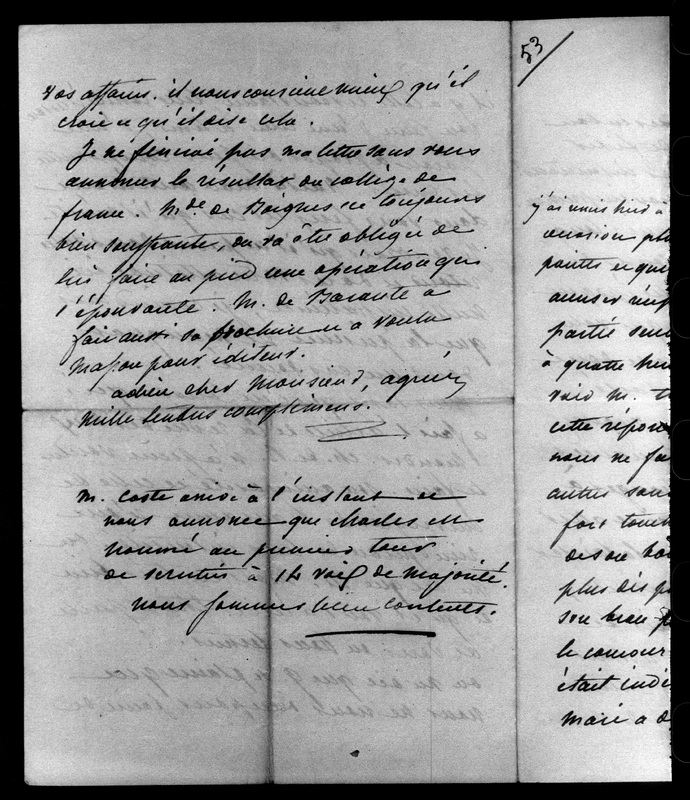 vos affaires. il nous convient mieux qu'il
croie ce qu'il dise cela.
Je ne finirai pas ma lettre sans vous
annoncer le résultat du collège de
france. Mde. de Boignes est toujours
bien souffrante, on va être obligée de
lui faire au pied une opération qui
l'épouvante. M. de Barante a
fait aussi sa brochure et a voulu
pour éditeur.
adieu cher Monsieur, agréez
mille tendres complimens.
M. Coste arrive à l'instant et
nous annonce que charles est
nommé au premier tour
de scrutin à 14 voix de majorité.
nous sommes bien contents.
53
j'ai
occasion
pointes et que
partie
à quatre
vois M.
cette
nous ne
autres sans
fort
de son
plus
son beau
le
était
Marie a